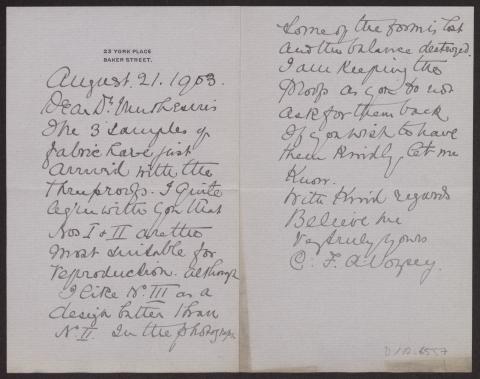 23 YORK PLACE
BAKER STREET.
August. 21. 1903.
Dear Dr. Muthesius
The 3 samples of
fabric have just
arrived with the
three proofs. I quite
agree with you that
Nos I & II are the
most suitable for
reproduction. although
I like No. III as a
design better than
No. II. In the photograph
some of the form is lost
and the balance destroyed.
I am keeping the
proofs as you do not
ask for them back
If you wish to have
them kindly let me
know.
With kind regards
Believe me
Very truly yours
C. F. A Voysey.